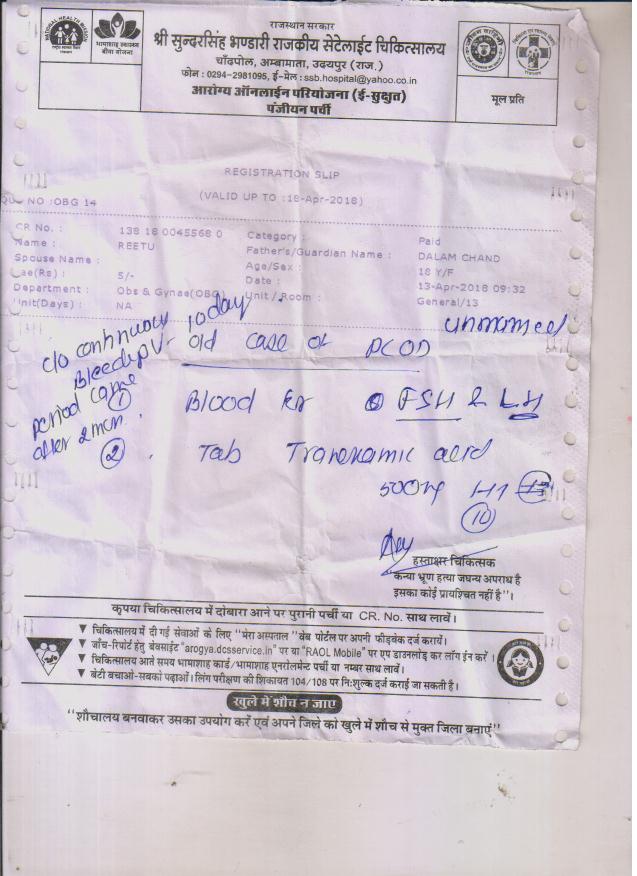 राजस्थान सरकार
श्री सुन्दरसिंह भण्डारी राजकीय सेटेलाईट चिकित्सालय
चाँदपोल, अम्बामाता, उदयपुर (राज.)
फोन : 0294-2981095, ई-मेल : ssb.hospital@yahoo.co.in
आरोग्य ऑनलाईन परियोजना (ई-सुश्रुत)
पंजीयन पर्ची
मूल प्रति
REGISTRATION SLIP
(VALID UP TO :18-Apr-2018)
NO :OBG 14
CR No. : 138 18 0045568 0 Category : Paid
Name : REETU Father's/Guardian Name : DALAM CHAND
Spouse Name : Age/Sex : 18 Y/F
(Rs) : 5/- Date : 13-Apr-2018 09:32
Department : Obs & Gynae(OBG) Unit / Room : General/13
Unit(Days) : NA
unmarried
c/o continuous 10 day
Bleed PV
period came
after 2 mon.
old case of PCOD
① Blood for FSH & LH
② . Tab Tranexamic acid
500mg
⑩
हस्ताक्षर चिकित्सक
कन्या भ्रूण हत्या जघन्य अपराध है
इसका कोई प्रायश्चित नहीं है"।
कृपया चिकित्सालय में दोबारा आने पर पुरानी पर्ची या CR. No. साथ लावें।
▼ चिकित्सालय में दी गई सेवाओं के लिए "मेरा अस्पताल" वेब पोर्टल पर अपनी फीडबेक दर्ज करायें।
▼ जाँच-रिपोर्ट हेतु बेवसाईट "arogya.dcsservice.in" पर या "RAOL Mobile" पर एप डाउनलोड कर लॉग ईन करें।
▼ चिकित्सालय आते समय भामाशाह कार्ड/भामाशाह एनरोलमेन्ट पर्ची या नम्बर साथ लावे।
▼ बेटी बचाओ-सबको पढ़ाओ। लिंग परीक्षण की शिकायत 104/108 पर निःशुल्क दर्ज कराई जा सकती है।
खुले में शौच न जाए
"शौचालय बनवाकर उसका उपयोग करें एवं अपने जिले को खुले में शौच से मुक्त जिला बनाएं"